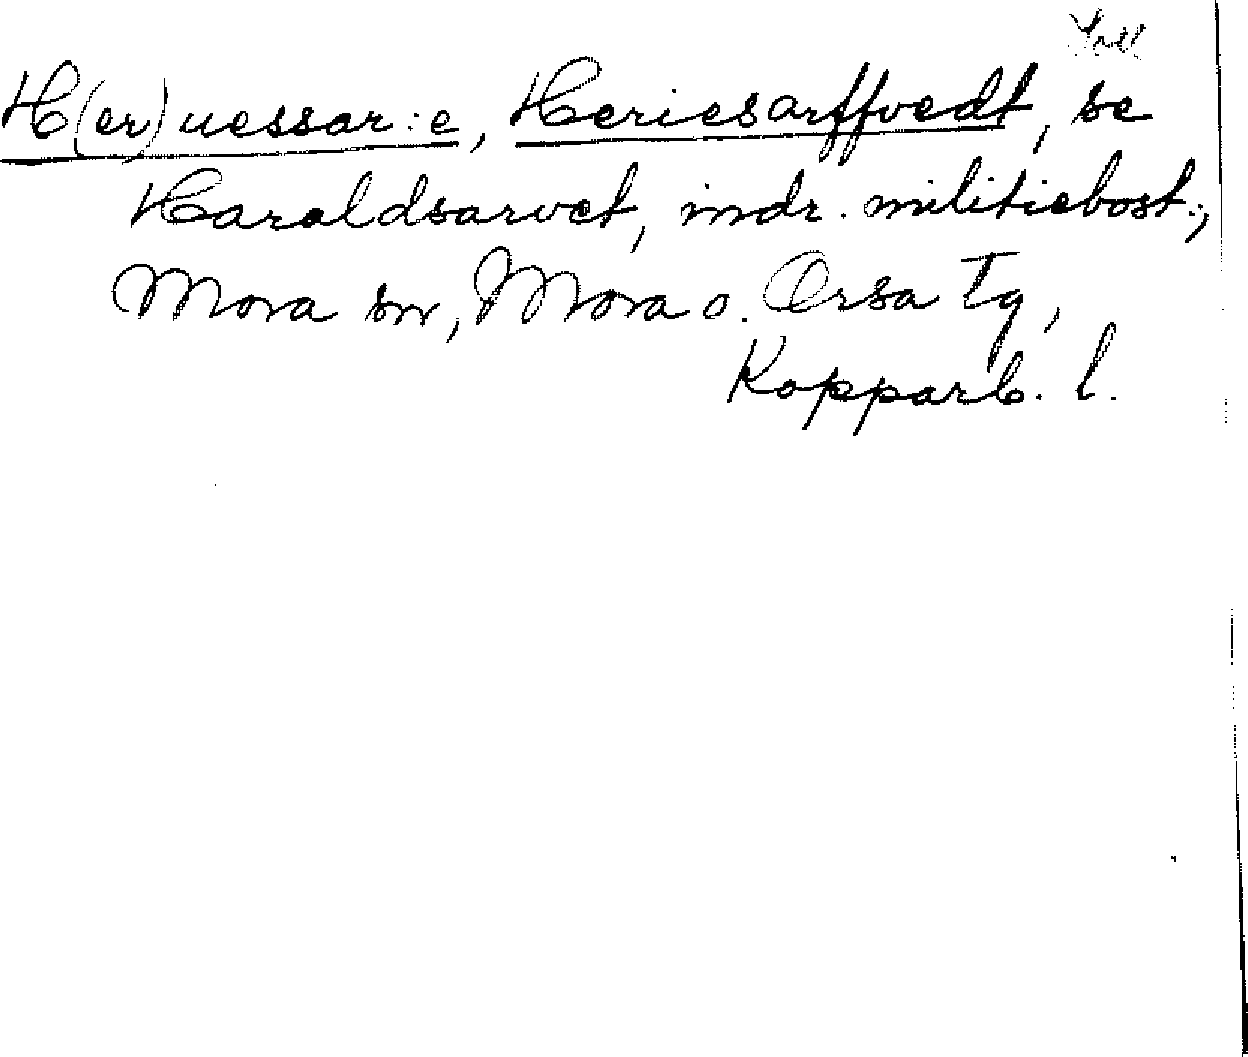 H(er)uessar:e, Heriesarffvedt, se
Haraldsarvet, indr. militiebost.,
Mora sn, Mora o. Orsa tg,
Kopparb. l.